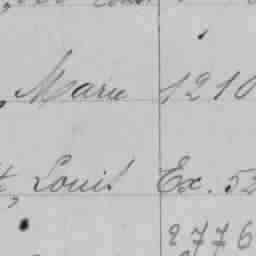 , Marie 1210
t, Louis Ex. 53
2776